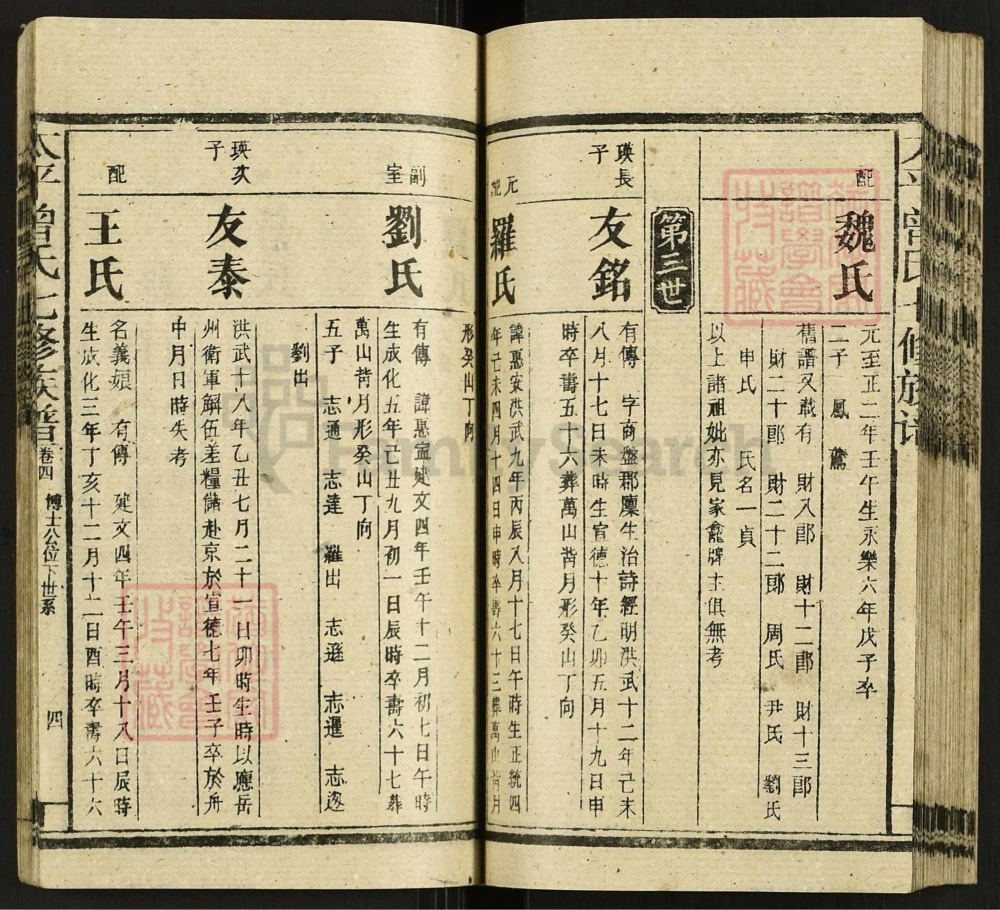 配
魏氏
元至正二年壬午生永樂六年戊子卒
二子 鳳 驚
舊譜又載有 財八郎 財十二郎 財十三郎
財二十郎 財二十二郎 周氏 尹氏 劉氏
申氏 氏名一貞
以上諸祖妣亦見家龕牌主俱無考
第三世
瑛長
子
友銘
有傳 字商盤郡廩生治詩經明洪武十二年己未
八月十七日未時生宣德十年乙卯五月十九日申
時卒壽五十六葬萬山背月形癸山丁向
元配
羅氏
諱惠安洪武九年丙辰八月十七日午時生正統四
年己未四月十四日申時卒壽六十三葬萬山背月
形癸山丁向
副
室
劉氏
有傳 諱惠寍建文四年壬午十二月初七日午時
生成化五年己丑九月初一日辰時卒壽六十七葬
萬山背月形癸山丁向
五子 志通 志達 羅出 志遜 志暹 志邃
劉出
瑛次
子
友泰
洪武十八年乙丑七月二十一日卯時生時以應岳
州衛軍解伍差糧儲赴京於宣德七年壬子卒於舟
中月日時失考
配
王氏
名義娘 有傳 建文四年壬午三月十八日辰時
生成化三年丁亥十二月十二日酉時卒壽六十六
太平曾氏七修族譜 卷四 博士公位下世系 四
FamilySearch